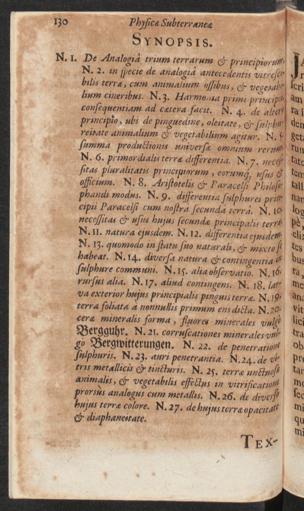 130 Physicæ Subterraneæ
SYNOPSIS.
N. 1. De Analogiâ trium terrarum & principiorum
N. 2. in specie de analogiâ antecedentis vitresci-
bilis terræ, cum animalium ossibus, & vegetabi-
lium cineribus. N. 3. Harmonia primi principii
consequentiam ad cætera facit. N. 4. de altero
principio, ubi de pinguedine, oleitate, & sulphu-
reitate animalium & vegetabilium agitur. N.
summa productionis universæ omnium rerum
N. 6. primordialis terræ differentia. N. 7. neces-
sitas pluralitatis principiorum, eorumq; usus &
officium. N. 8. Aristotelis & Paracelsi Philoso-
phandi modus. N. 9. differentia sulphurei prin-
cipii Paracelsi cum nostra secunda terrâ. N. 10.
necessitas & usus hujus secunda principalis terræ
N. 11. natura ejusdem. N. 12. differentia ejusdem
N. 13. quomodo in statu suo naturali, & mixto se
habeat. N. 14. diversa natura & contingentia à
sulphure communi. N. 15. alia observatio. N. 16.
rursus alia. N. 17. aliud contingens. N. 18. lar-
va exterior hujus principialis pinguis terræ. N. 19.
terra foliata à nonnullis primum ens dicta. N. 20.
cera mineralis forma, fluores minerales vulgo
Bergguhr. N. 21. corruscationes minerales vul-
go Bergwitterungen. N. 22. de penetratione
sulphuris. N. 23. auri penetrantia. N. 24. de vi-
tris metallicis & tincturis. N. 25. terræ unctuosæ
animalis, & vegetabilis effectus in vitrificatione
prorsus analogus cum metallis. N. 26. de diverso
hujus terræ colore. N. 27. de hujus terræ opacitate
& diaphaneitate.
TEX-